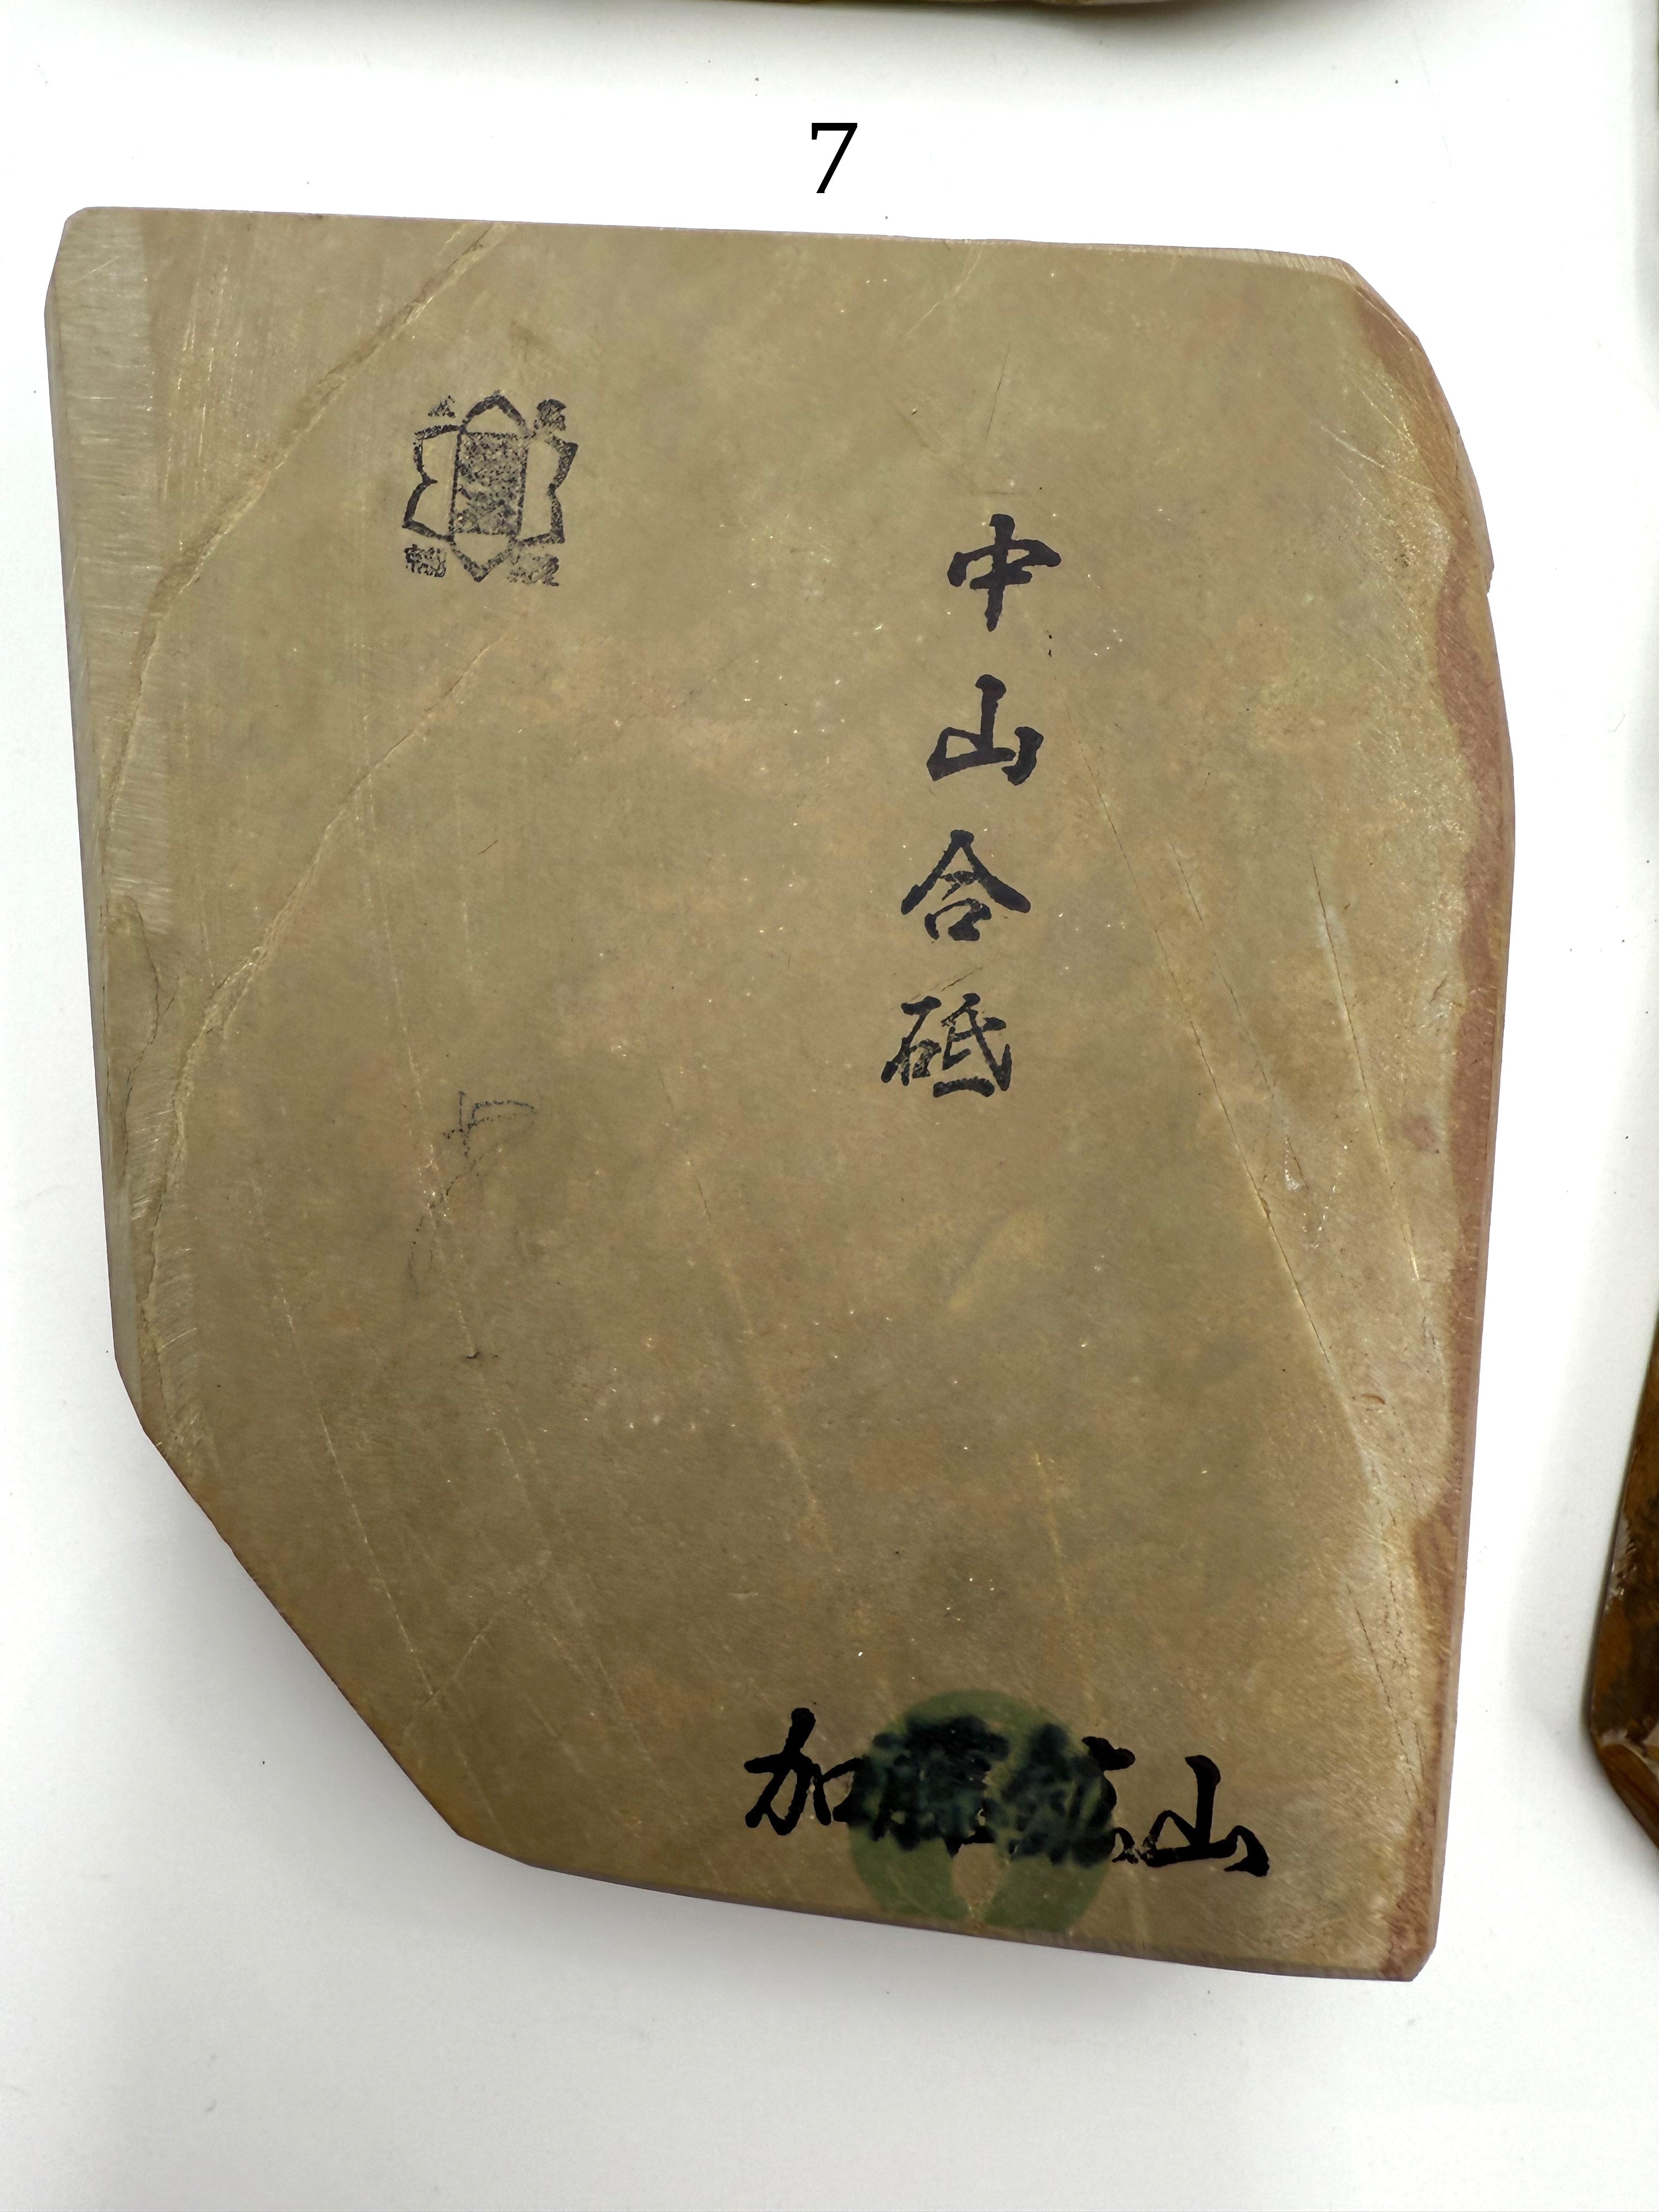 7
中山合砥
加藤鉱山